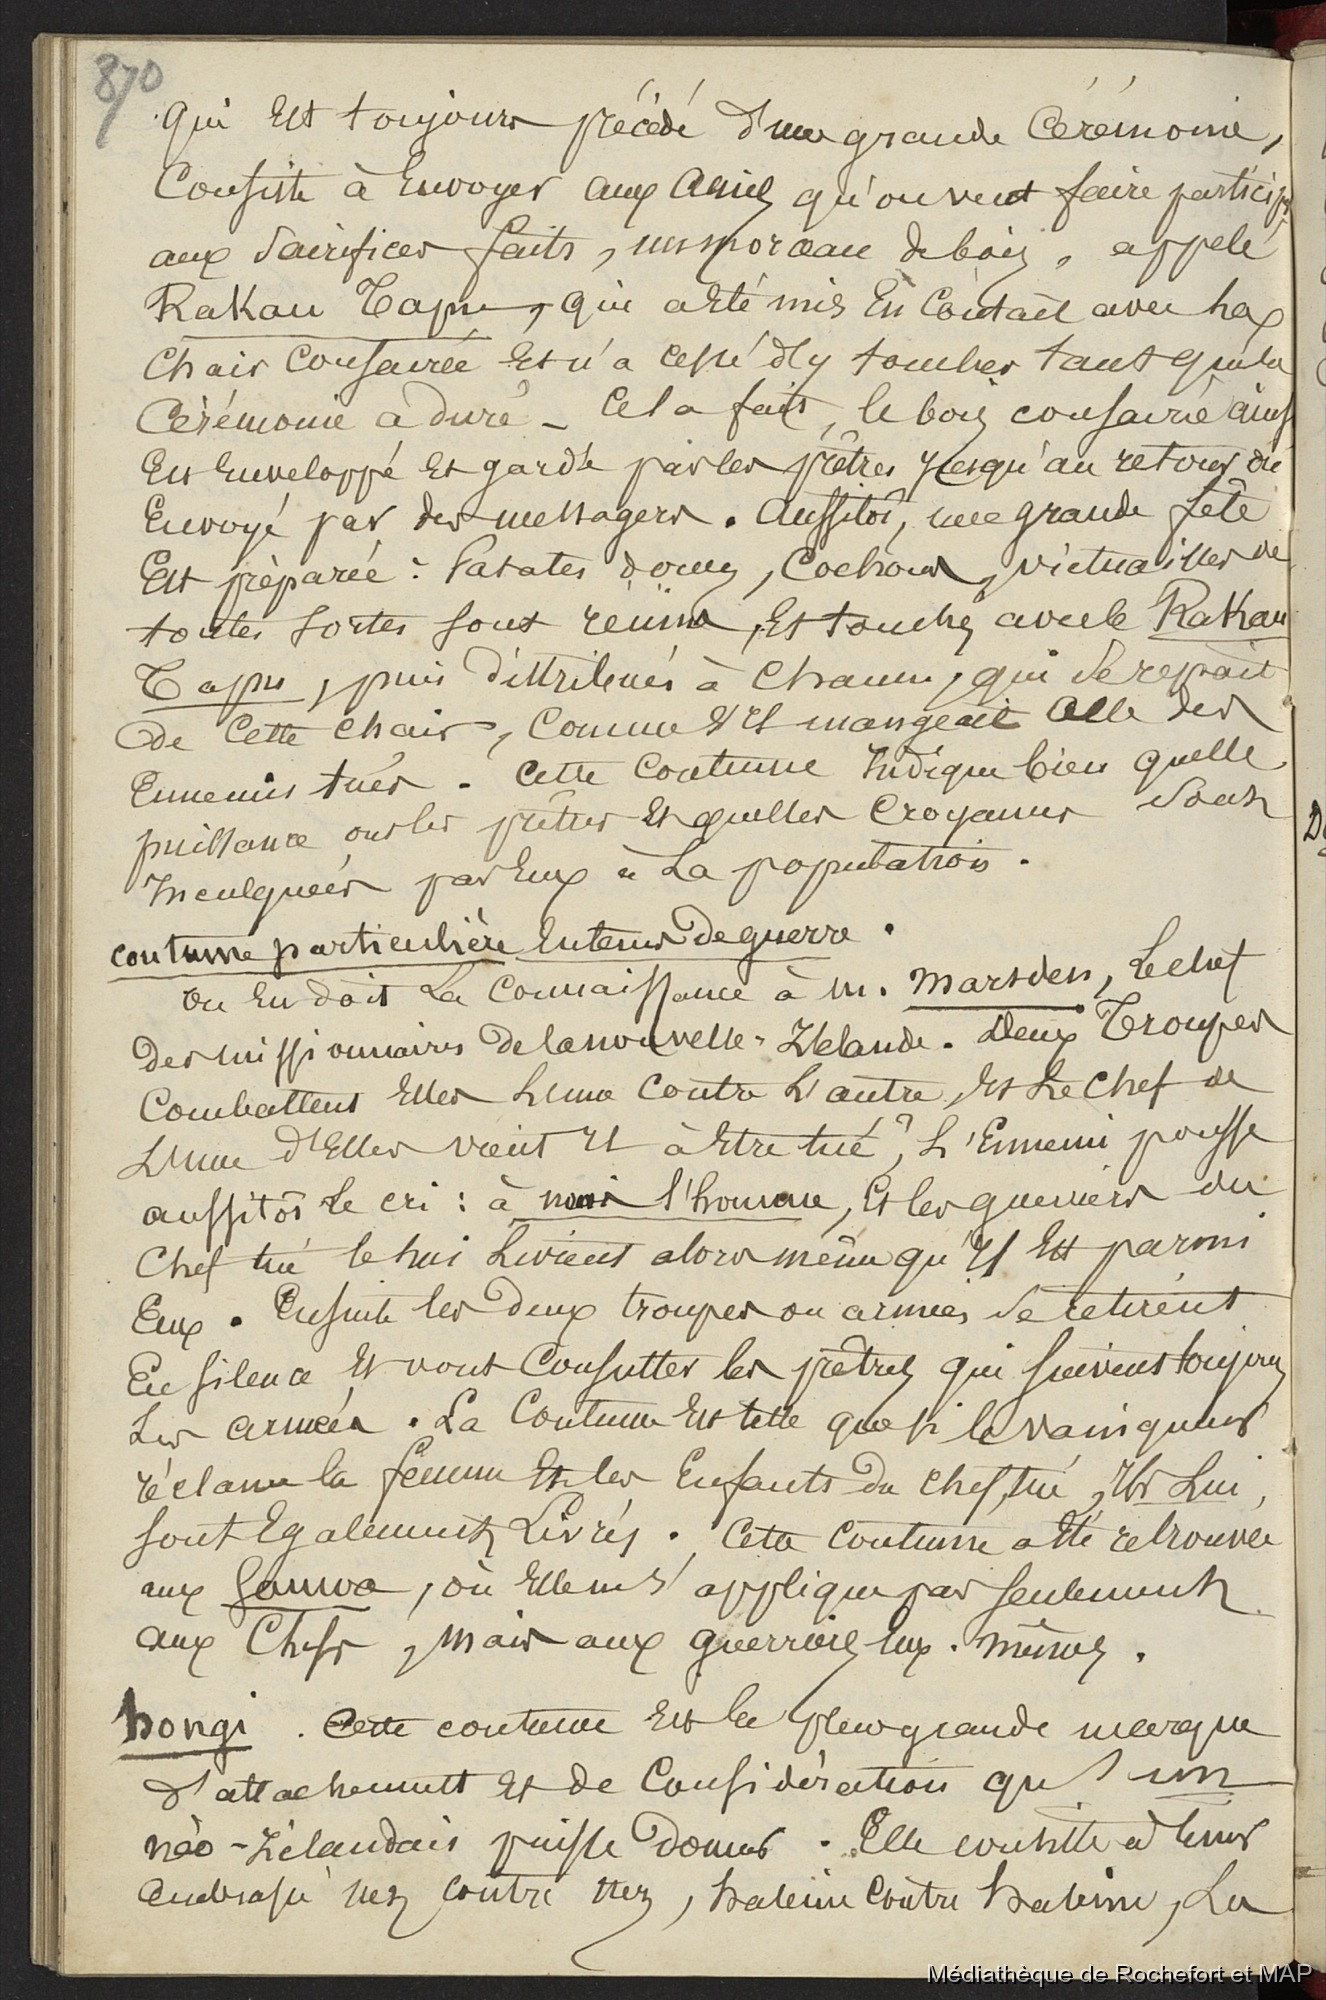 870
qui Est toujours précédé d'une grande Cérémonie,
Consiste à Envoyer aux Amis qu'on veut faire particip
aux Sacrifices faits, un morceau de bois, appelé
Rakau Tapu, qui a Eté mis En Contact avec la
Chair Consacrée Et n'a cessé d'y toucher tant que la
Cérémonie a duré - Cela fait, le bois consacré ainsi
Est Enveloppé Et gardé par les prêtres jusqu'au retour du
Envoyé par des messagers. Aussitôt, une grande fête
Est préparée : Patates douces, Cochons, victuailles de
toutes Sortes sont réunis, Et touchés avec le Rakau
Tapu, puis distribués à Chacun, qui se repait
de Cette chair, Comme s'Il mangeait celle des
Ennemis tués. Cette Coutume Indique bien quelle
puissance ont les prêtres Et quelles Croyances sont
Inculquées par Eux à La population.
coutume particulière En tems de guerre.
On En doit La Connaissance à M. Marsden, Le chef
des missionnaires de la nouvelle-Zélande. Deux Troupes
Combattent Elles L'une Contre L'autre, Et Le Chef de
L'une d'Elles vient Il à Etre tué?, L'Ennemi pousse
aussitôt Le cri : à moi l'homme, Et les guerriers du
Chef tué le lui Livrent alors même qu'Il Est parmi
Eux. Ensuite les deux troupes ou armées se retirent
En Silence Et vont Consulter les prêtres qui suivent toujours
Les armées. La Coutume Est telle que si le vainqueur
réclame la femme Et les Enfants du chef tué, Ils Lui,
sont Egalement Livrés. Cette Coutume a Eté retrouvée
aux Samoa, où Elle ne s'applique pas seulement
aux Chefs, Mais aux guerriers Eux-mêmes.
hongi. Cette coutume Est la plus grande marque
d'attachement Et de Considération qu'un
néo-Zélandais puisse donner. Elle consiste à tenir
Embrassé nez contre nez, haleine contre haleine, La
Médiathèque de Rochefort et MAP